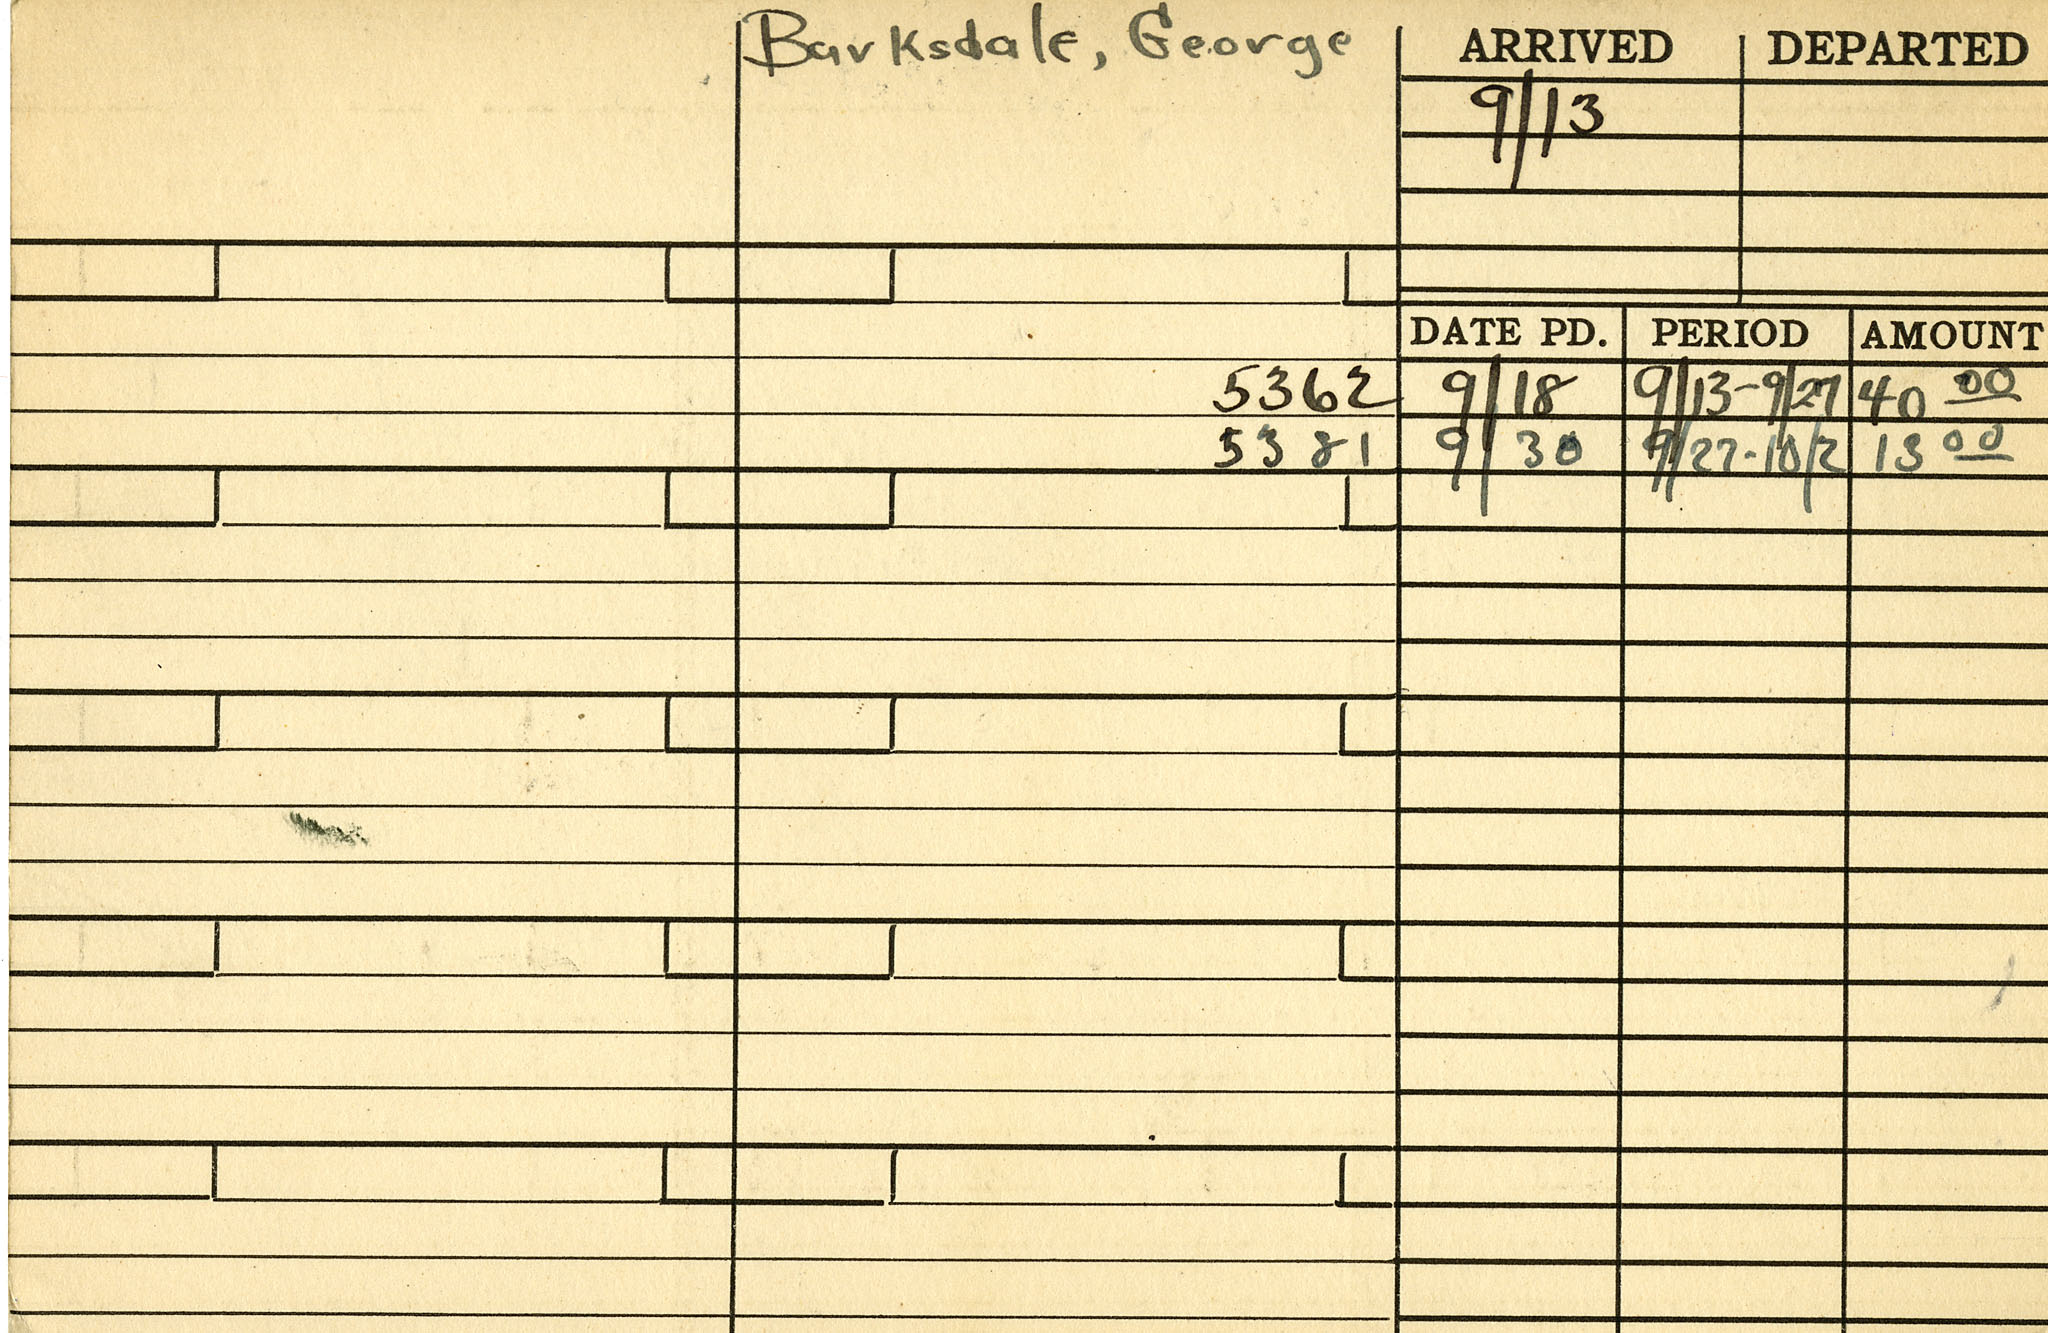 Barksdale, George
ARRIVED DEPARTED
9/13
DATE PD. PERIOD AMOUNT
5362 9/18 9/13-9/27 40 00
5381 9/30 9/27-10/2 13 00